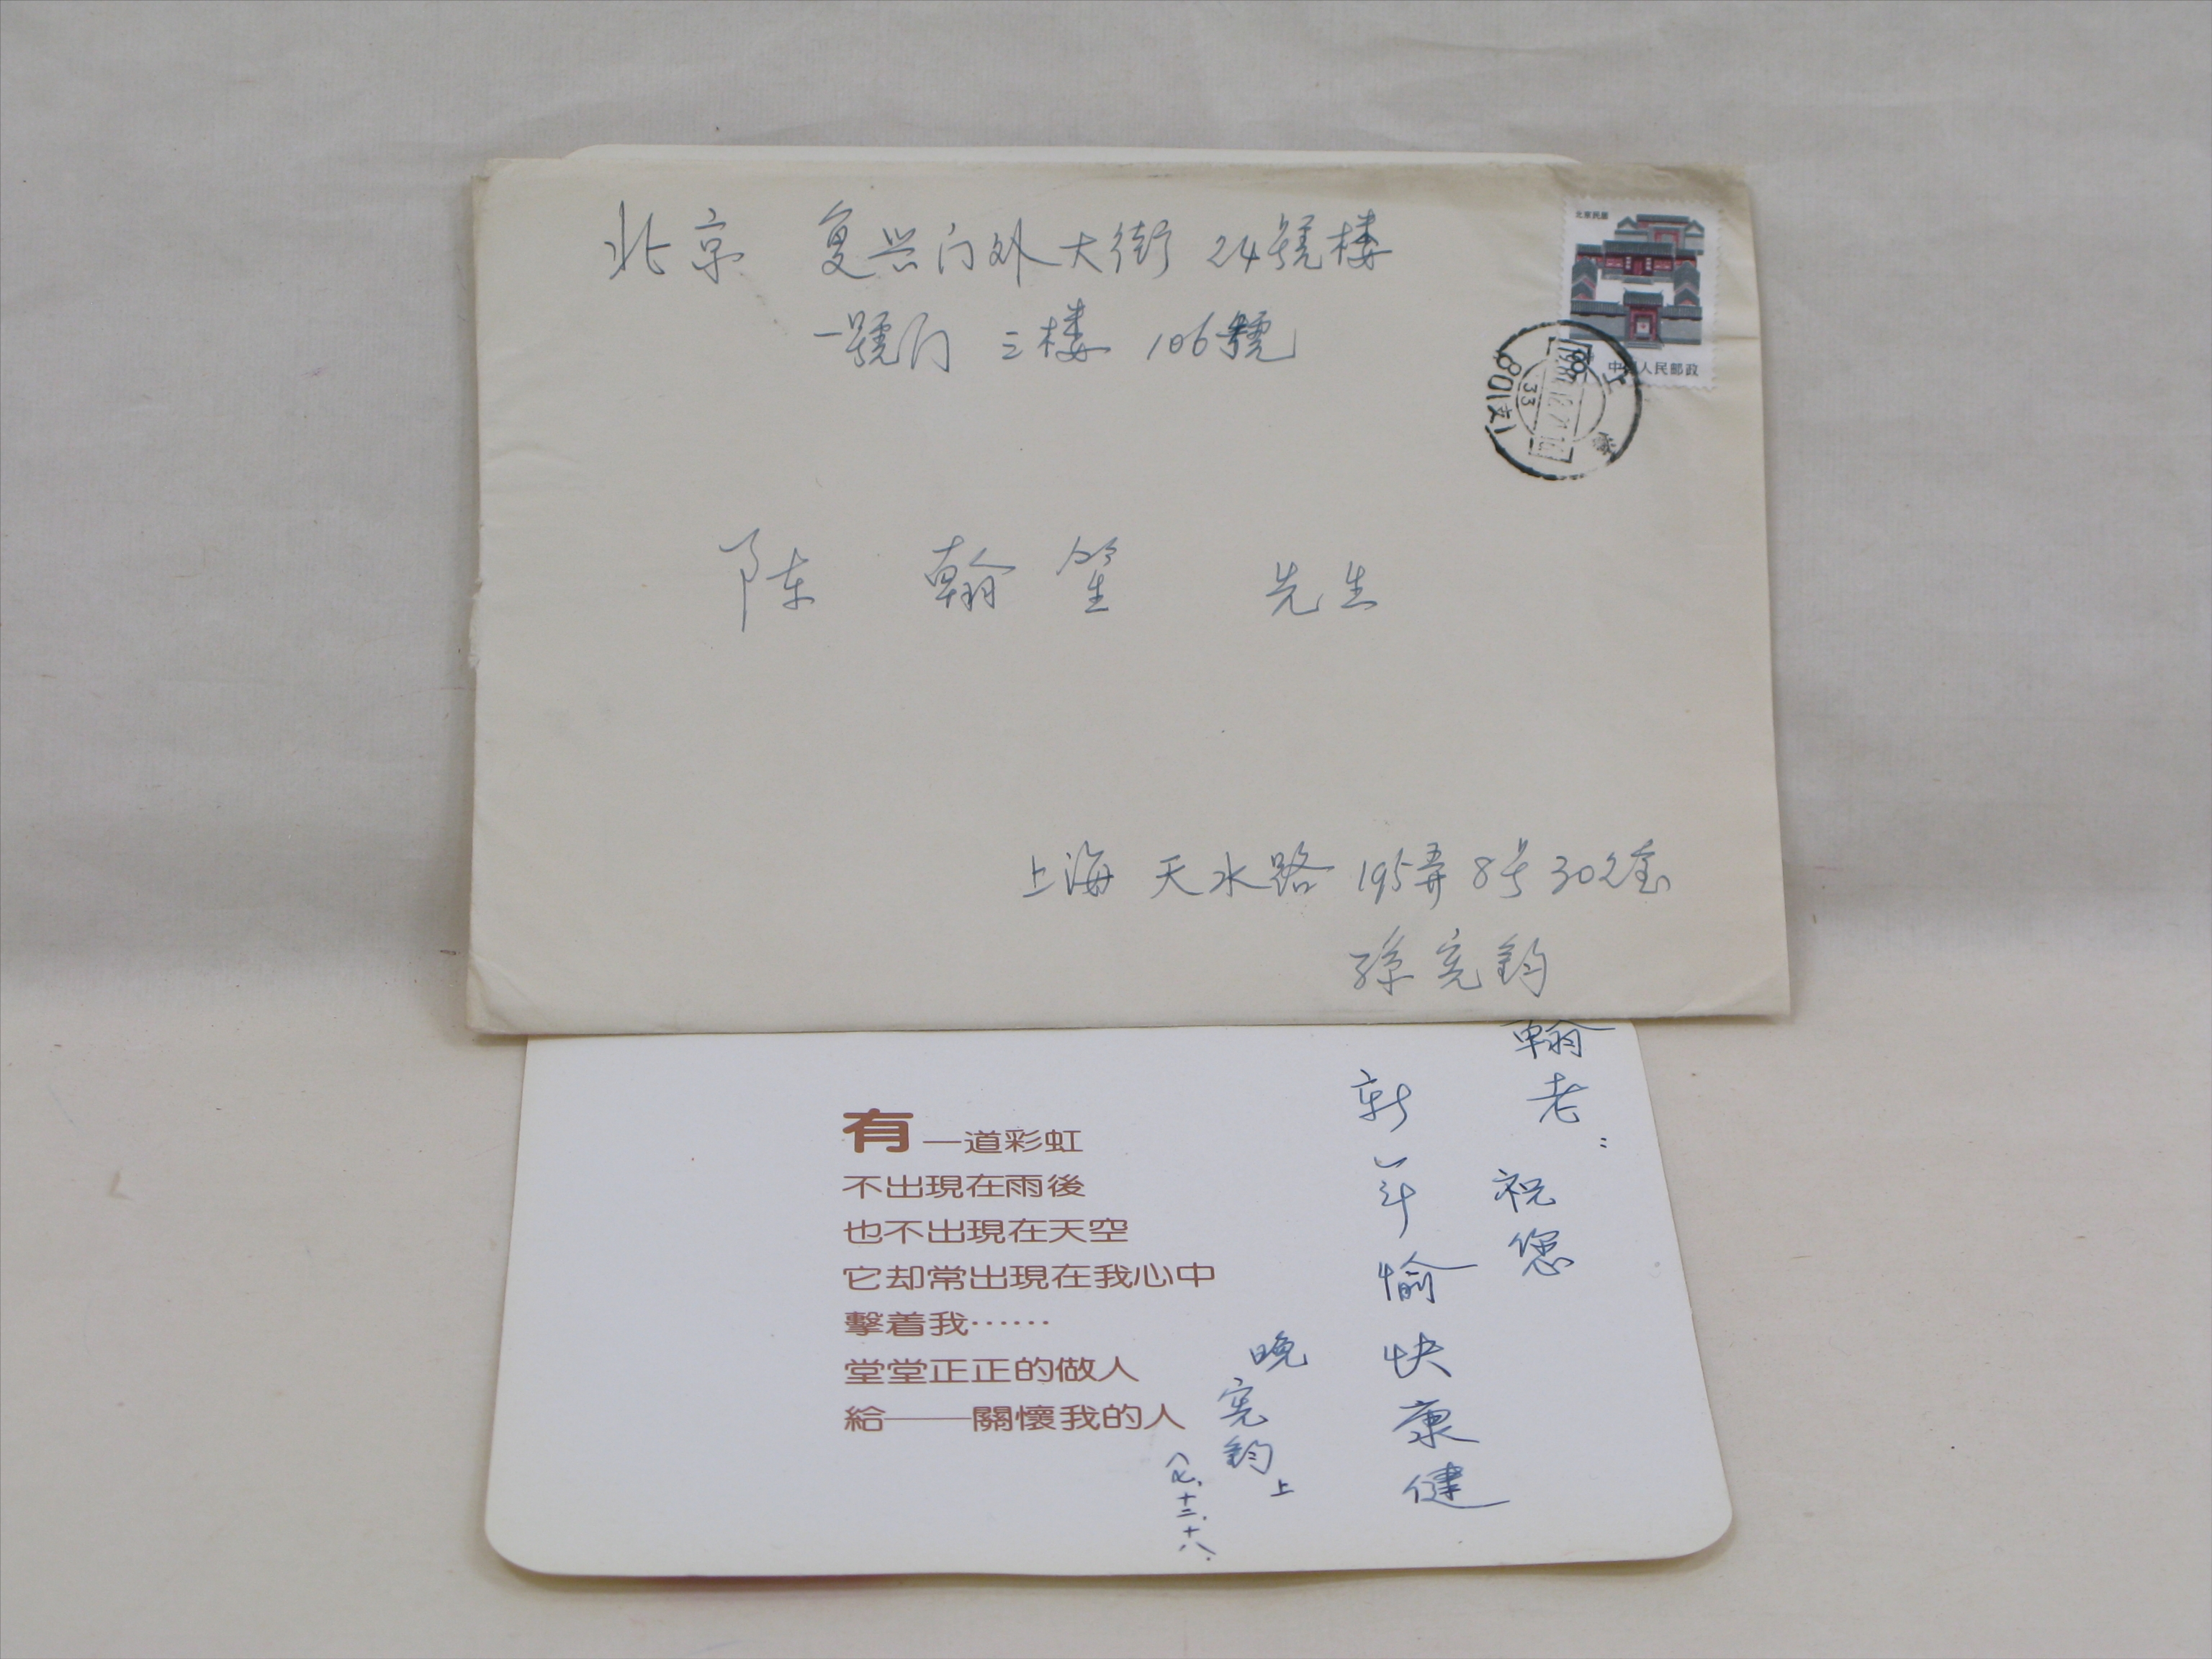 北京 复兴门外大街 24號楼
一號门 三楼 106號
北京民居
中国人民邮政
上海
801支
33
陈 翰笙 先生
上海 天水路 195弄 8号 302室
孫宪鈞
翰老：
祝您
新年愉快康健
晚宪鈞上
八七.十二.十八.
有一道彩虹
不出現在雨後
也不出現在天空
它却常出現在我心中
擊着我……
堂堂正正的做人
給——關懷我的人